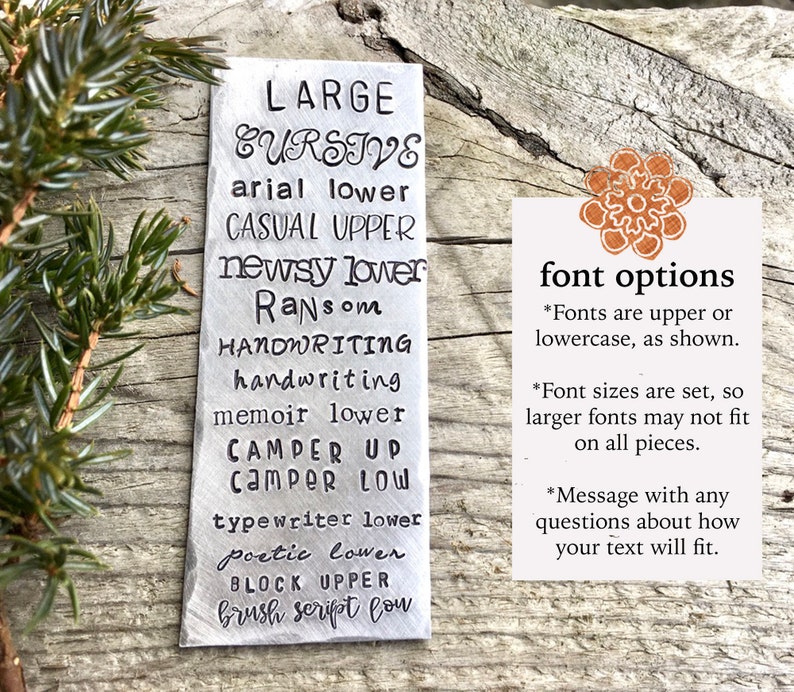 LARGE
CURSIVE
arial lower
CASUAL UPPER
newsy lower
RaNsom
HANDWRITING
handwriting
memoir lower
CAMPER UP
camper low
typewriter lower
poetic lower
BLOCK UPPER
brush script low
font options
*Fonts are upper or
lowercase, as shown.
*Font sizes are set, so
larger fonts may not fit
on all pieces.
*Message with any
questions about how
your text will fit.